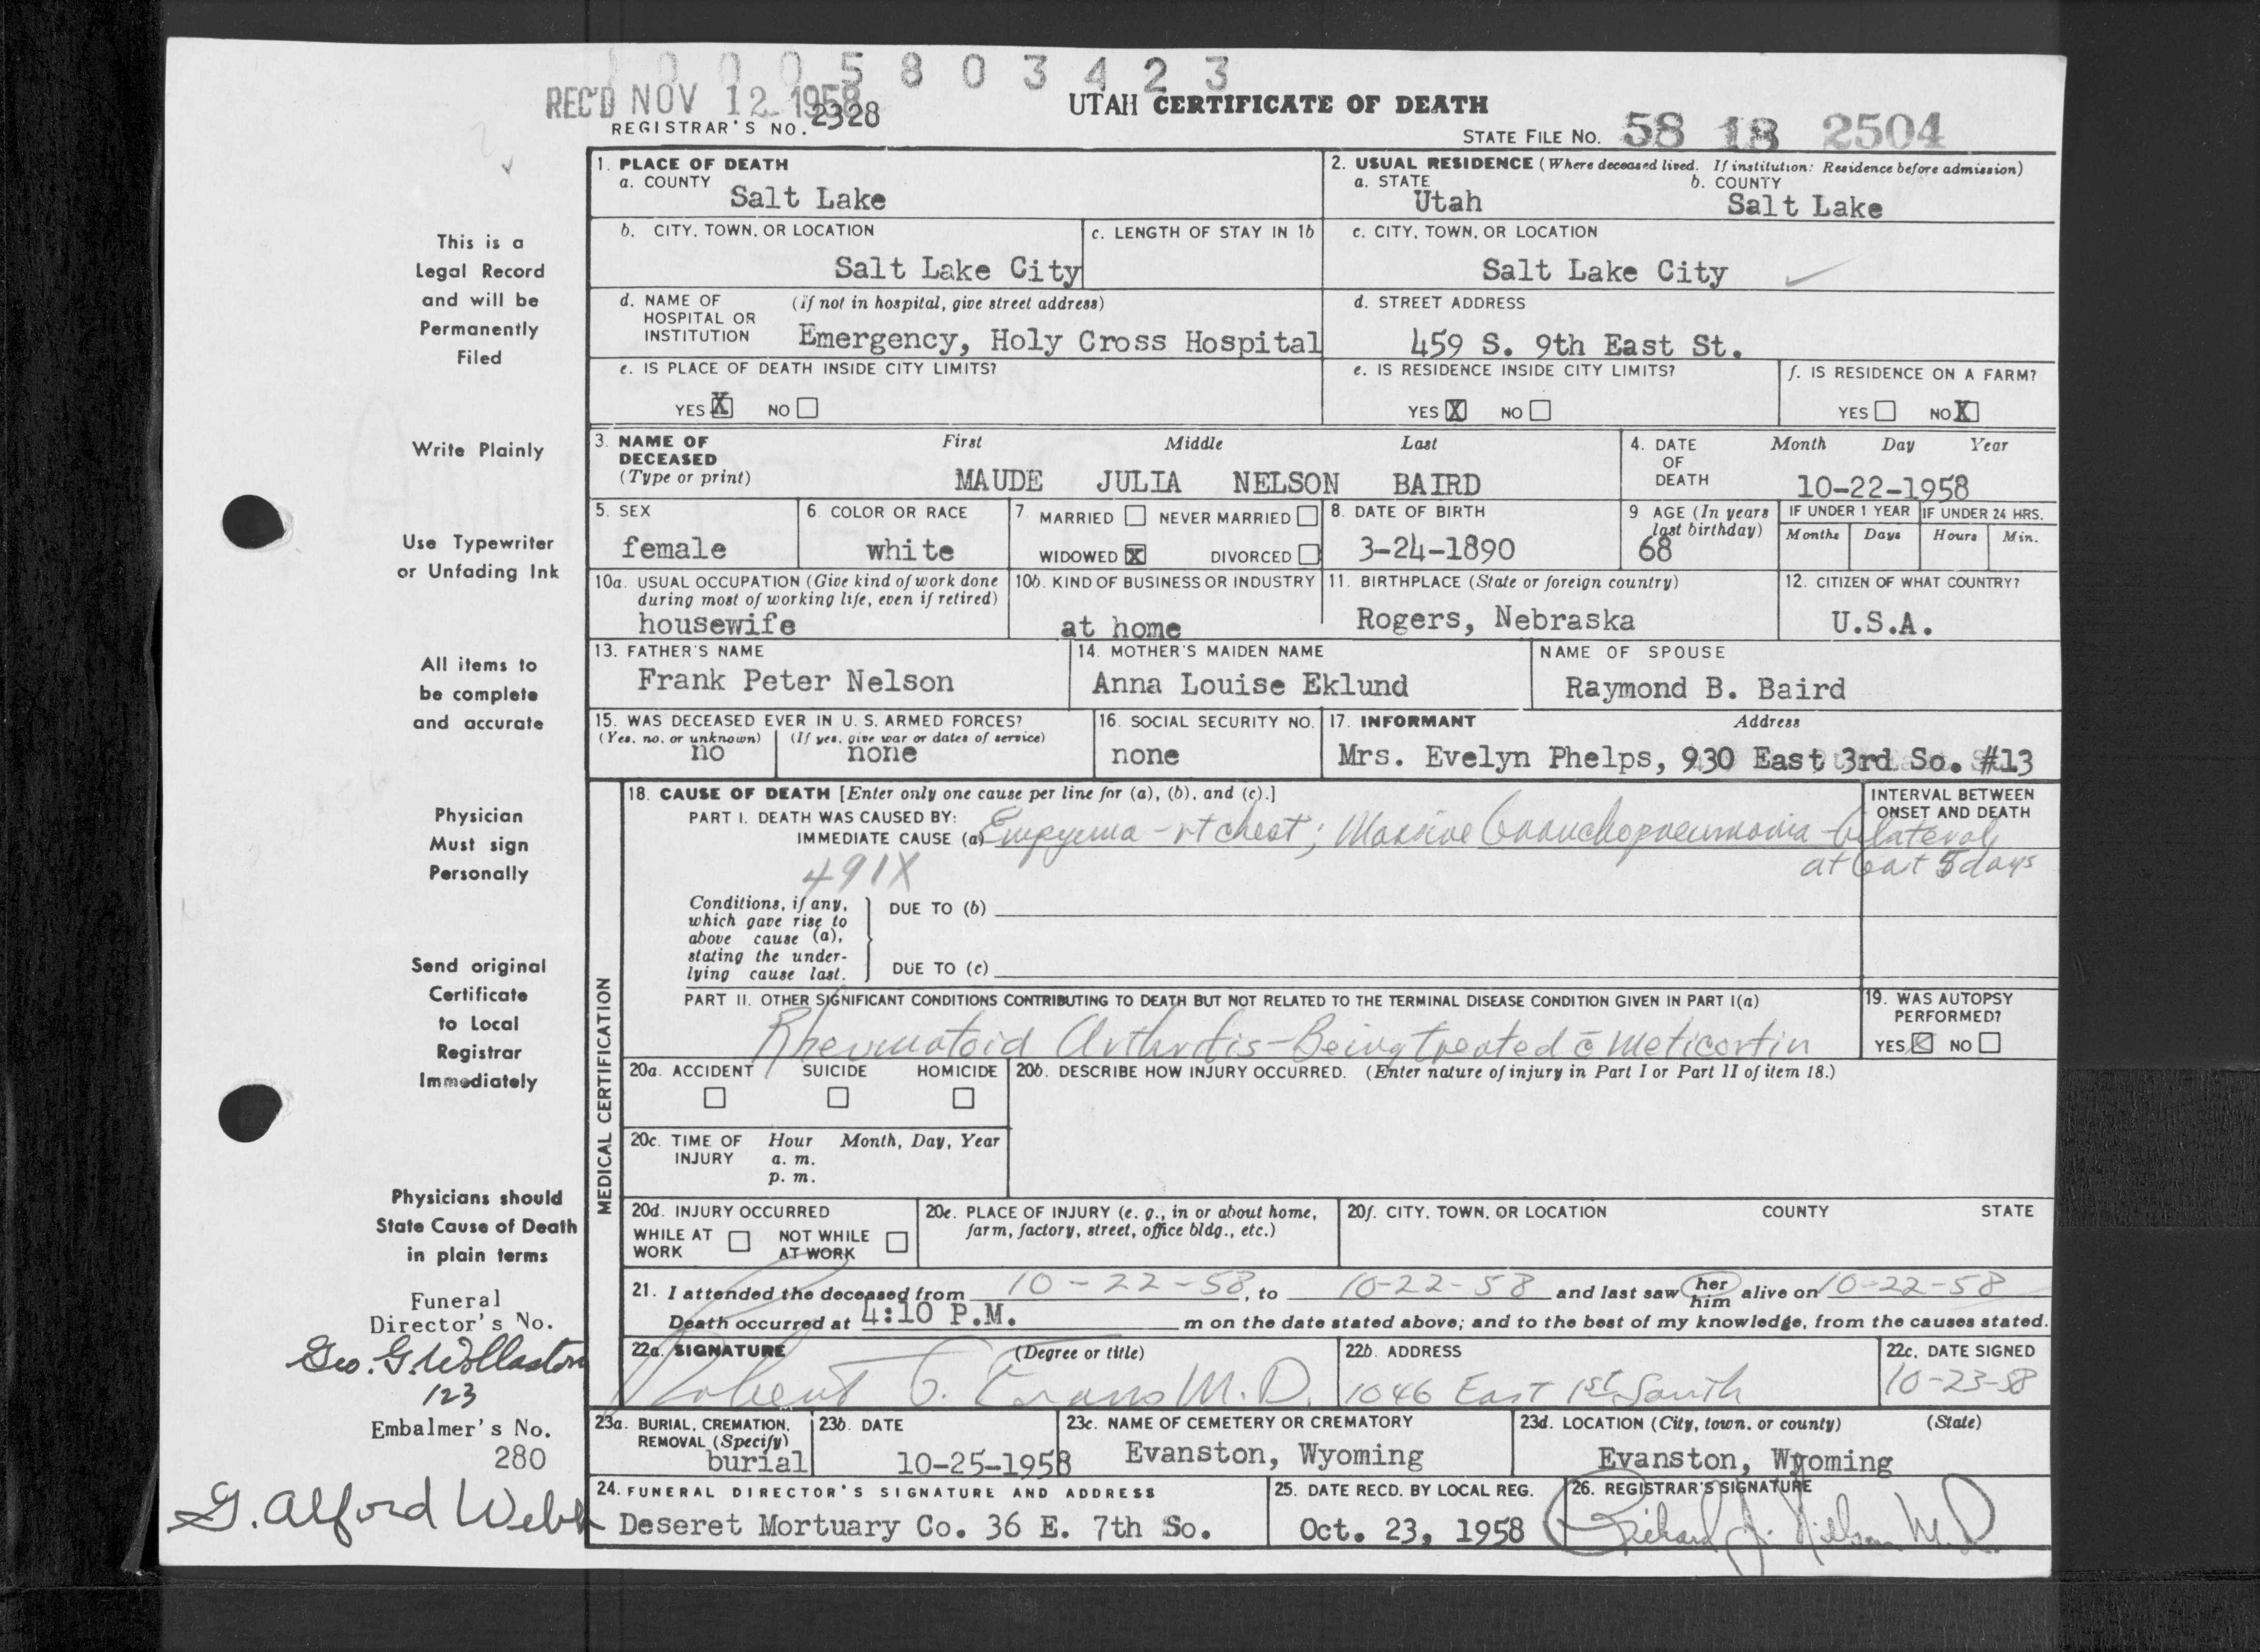 0 0 0 5 8 0 3 4 2 3
REC'D NOV 12 1958
UTAH CERTIFICATE OF DEATH
REGISTRAR'S NO. 2328
STATE FILE NO. 58 18 2504
This is a
Legal Record
and will be
Permanently
Filed
Write Plainly
Use Typewriter
or Unfading Ink
All items to
be complete
and accurate
Physician
Must sign
Personally
Send original
Certificate
to Local
Registrar
Immediately
Physicians should
State Cause of Death
in plain terms
Funeral
Director's No.
Geo. G. Wollaston
123
Embalmer's No.
280
G. Alford Webb
1. PLACE OF DEATH
a. COUNTY
Salt Lake
2. USUAL RESIDENCE (Where deceased lived. If institution: Residence before admission)
a. STATE
Utah
b. COUNTY
Salt Lake
b. CITY, TOWN, OR LOCATION
Salt Lake City
c. LENGTH OF STAY IN 1b
c. CITY, TOWN, OR LOCATION
Salt Lake City
d. NAME OF (If not in hospital, give street address)
HOSPITAL OR
INSTITUTION Emergency, Holy Cross Hospital
d. STREET ADDRESS
459 S. 9th East St.
e. IS PLACE OF DEATH INSIDE CITY LIMITS?
YES X NO
e. IS RESIDENCE INSIDE CITY LIMITS?
YES X NO
f. IS RESIDENCE ON A FARM?
YES NO X
3. NAME OF DECEASED (Type or print)
First Middle Last
MAUDE JULIA NELSON BAIRD
4. DATE OF DEATH
Month Day Year
10-22-1958
5. SEX
female
6. COLOR OR RACE
white
7. MARRIED NEVER MARRIED
WIDOWED X DIVORCED
8. DATE OF BIRTH
3-24-1890
9 AGE (In years last birthday)
68
IF UNDER 1 YEAR IF UNDER 24 HRS.
Months Days Hours Min.
10a. USUAL OCCUPATION (Give kind of work done
during most of working life, even if retired)
housewife
10b. KIND OF BUSINESS OR INDUSTRY
at home
11. BIRTHPLACE (State or foreign country)
Rogers, Nebraska
12. CITIZEN OF WHAT COUNTRY?
U.S.A.
13. FATHER'S NAME
Frank Peter Nelson
14. MOTHER'S MAIDEN NAME
Anna Louise Eklund
NAME OF SPOUSE
Raymond B. Baird
15. WAS DECEASED EVER IN U. S. ARMED FORCES?
(Yes, no, or unknown) (If yes, give war or dates of service)
no none
16. SOCIAL SECURITY NO.
none
17. INFORMANT Address
Mrs. Evelyn Phelps, 930 East 3rd So. #13
MEDICAL CERTIFICATION
18. CAUSE OF DEATH [Enter only one cause per line for (a), (b), and (c).]
INTERVAL BETWEEN
ONSET AND DEATH
PART I. DEATH WAS CAUSED BY:
IMMEDIATE CAUSE (a) Empyema - rt chest; Massive bronchopneumonia - bilateral
at least 5 days
491X
Conditions, if any,
which gave rise to
above cause (a),
stating the under-
lying cause last.
DUE TO (b)
DUE TO (c)
PART II. OTHER SIGNIFICANT CONDITIONS CONTRIBUTING TO DEATH BUT NOT RELATED TO THE TERMINAL DISEASE CONDITION GIVEN IN PART I(a)
Rheumatoid Arthritis - Being treated c̄ meticortin
19. WAS AUTOPSY
PERFORMED?
YES X NO
20a. ACCIDENT SUICIDE HOMICIDE
20b. DESCRIBE HOW INJURY OCCURRED. (Enter nature of injury in Part I or Part II of item 18.)
20c. TIME OF INJURY Hour Month, Day, Year
a. m.
p. m.
20d. INJURY OCCURRED
WHILE AT WORK NOT WHILE AT WORK
20e. PLACE OF INJURY (e. g., in or about home,
farm, factory, street, office bldg., etc.)
20f. CITY, TOWN, OR LOCATION COUNTY STATE
21. I attended the deceased from 10-22-58, to 10-22-58 and last saw her him alive on 10-22-58
Death occurred at 4:10 P.M. m on the date stated above; and to the best of my knowledge, from the causes stated.
22a. SIGNATURE (Degree or title)
Robert G. Evans M.D.
22b. ADDRESS
1046 East 1st South
22c. DATE SIGNED
10-23-58
23a. BURIAL, CREMATION,
REMOVAL (Specify)
burial
23b. DATE
10-25-1958
23c. NAME OF CEMETERY OR CREMATORY
Evanston, Wyoming
23d. LOCATION (City, town, or county) (State)
Evanston, Wyoming
24. FUNERAL DIRECTOR'S SIGNATURE AND ADDRESS
Deseret Mortuary Co. 36 E. 7th So.
25. DATE RECD. BY LOCAL REG.
Oct. 23, 1958
26. REGISTRAR'S SIGNATURE
Richard J. Nielsen M.D.